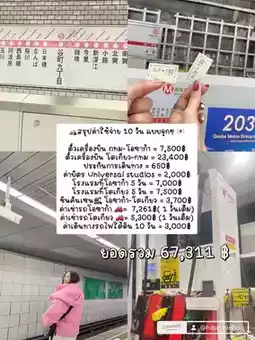 玉川
阿波座
西長堀
桜川
なんば
日本橋
谷町九丁目
鶴橋
今里
新深江
小路
北巽
南巽
203
Osaka Metro
สรุปค่าใช้จ่าย 10 วัน แบบจุกๆ
ตั๋วเครื่องบิน กทม-โอซาก้า = 7,500฿
ตั๋วเครื่องบิน โตเกียว-กทม = 23,400฿
ประกันการเดินทาง = 650฿
ค่าบัตร Universal studios = 2,000฿
โรงแรมที่โอซาก้า 5 วัน = 7,000฿
โรงแรมที่โตเกียว 5 วัน = 7,500฿
ชินคันเซน โอซาก้า-โตเกียว = 3,700฿
ค่าเช่ารถโอซาก้า = 7,261฿( 1 วันเต็ม)
ค่าเช่ารถโตเกียว = 5,300฿ (1 วันเต็ม)
ค่าเดินทางรถไฟใต้ดิน 10 วัน = 3,000฿
ยอดรวม 67,311 ฿